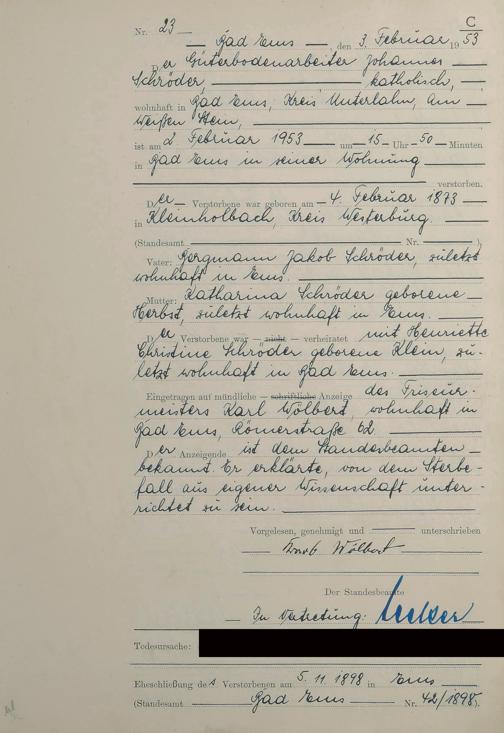 C
Nr. 23
Bad Ems, den 3. Februar 1953
Der Güterbodenarbeiter Johannes
Schröder, katholisch,
wohnhaft in Bad Ems, Kreis Unterlahn, Am
Weißen Stein,
ist am 2 Februar 1953 um 15 Uhr 50 Minuten
in Bad Ems in seiner Wohnung
verstorben.
Der Verstorbene war geboren am 4. Februar 1873
in Kleinholbach, Kreis Westerburg.
(Standesamt Nr. ).
Vater: Bergmann Jakob Schröder, zuletzt
wohnhaft in Ems.
Mutter: Katharina Schröder geborene
Herbst, zuletzt wohnhaft in Ems.
Der Verstorbene war – nicht – verheiratet mit Henriette
Christine Schröder geborene Klein, zu-
letzt wohnhaft in Bad Ems.
Eingetragen auf mündliche – schriftliche Anzeige des Friseur-
meisters Karl Wölbert, wohnhaft in
Bad Ems, Römerstraße 62
Der Anzeigende ist dem Standesbeamten
bekannt. Er erklärte, von dem Sterbe-
fall aus eigener Wissenschaft unter-
richtet zu sein.
Vorgelesen, genehmigt und unterschrieben
Wölbert
Der Standesbeamte
In Vertretung:
Todesursache:
Eheschließung des Verstorbenen am 5. 11. 1898 in Ems
(Standesamt Bad Ems Nr. 42/1898).